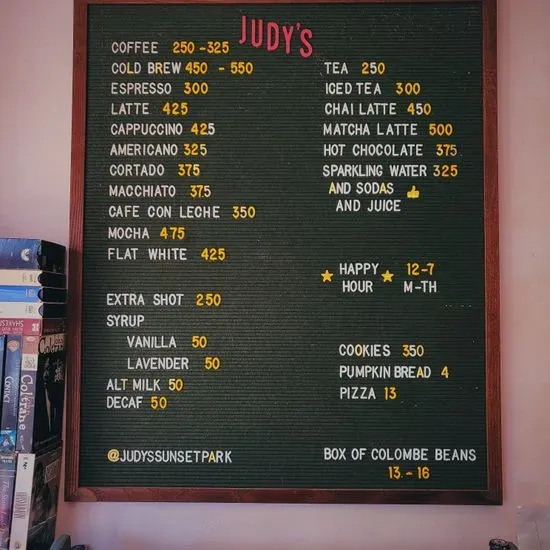 JUDY'S
COFFEE 250 - 325
COLD BREW 450 - 550
ESPRESSO 300
LATTE 425
CAPPUCCINO 425
AMERICANO 325
CORTADO 375
MACCHIATO 375
CAFE CON LECHE 350
MOCHA 475
FLAT WHITE 425
EXTRA SHOT 250
SYRUP
VANILLA 50
LAVENDER 50
ALT MILK 50
DECAF 50
@JUDYSSUNSETPARK
TEA 250
ICED TEA 300
CHAI LATTE 450
MATCHA LATTE 500
HOT CHOCOLATE 375
SPARKLING WATER 325
AND SODAS 👍
AND JUICE
★ HAPPY ★ 12-7
HOUR M-TH
COOKIES 350
PUMPKIN BREAD 4
PIZZA 13
BOX OF COLOMBE BEANS
13.- 16
CONTACT
Coltrane